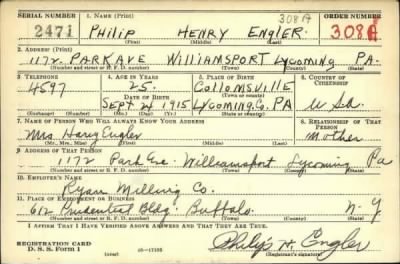 SERIAL NUMBER 1. NAME (Print) 308A ORDER NUMBER
2471 PHILIP HENRY ENGLER. 308A
(First) (Middle) (Last)
2. ADDRESS (Print)
1172. PARK AVE WILLIAMSPORT LYCOMING PA.
(Number and street or R. F. D. number) (Town) (County) (State)
3. TELEPHONE 4. AGE IN YEARS 5. PLACE OF BIRTH 6. COUNTRY OF CITIZENSHIP
4597 25. COLLOMSVILLE
DATE OF BIRTH (Town or county)
SEPT 24 1915 LYCOMING, CO. PA U.S.A.
(Exchange) (Number) (Mo.) (Day) (Yr.) (State or country)
7. NAME OF PERSON WHO WILL ALWAYS KNOW YOUR ADDRESS 8. RELATIONSHIP OF THAT PERSON
Mrs. Harry Engler Mother
(Mr., Mrs., Miss) (First) (Middle) (Last)
9. ADDRESS OF THAT PERSON
1172 Park Ave. Williamsport Lycoming Pa
(Number and street or R. F. D. number) (Town) (County) (State)
10. EMPLOYER'S NAME
Ryan Milling Co.
11. PLACE OF EMPLOYMENT OR BUSINESS
612 Prudential Bldg. Buffalo. N-Y
(Number and street or R. F. D. number) (Town) (County) (State)
I AFFIRM THAT I HAVE VERIFIED ABOVE ANSWERS AND THAT THEY ARE TRUE.
REGISTRATION CARD
D. S. S. Form 1 (over) 16-17105 Philip H. Engler
(Registrant's signature)